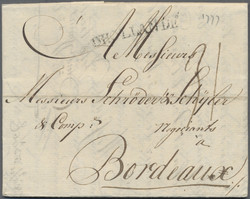 HOLLANDE
A Messieurs
Messieurs Schröder & Schÿler
& Comp.e Negotiants
a
Bordeaux